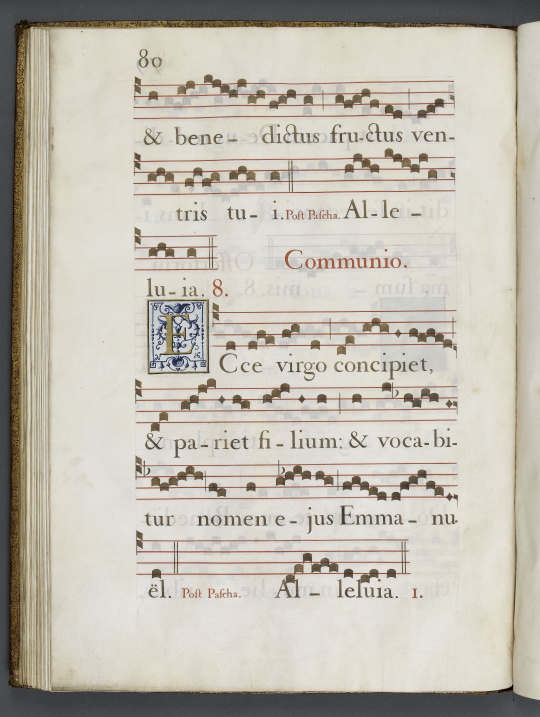 80
& bene- dictus fructus ven-
tris tu- i. Post Pascha. Al-le-
Communio.
lu-ia. 8.
ECce virgo concipiet,
& pa-riet fi-lium: & voca-bi-
tur nomen e-jus Emma-nu
ël. Post Pascha. Al-leluia. 1.